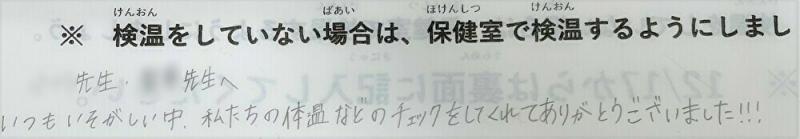 けんおん ばあい ほけんしつ けんおん
※ 検温をしていない場合は、保健室で検温するようにしまし
先生・ 先生へ
いつもいそがしい中、私たちの体温などのチェックをしてくれてありがとうございました!!!